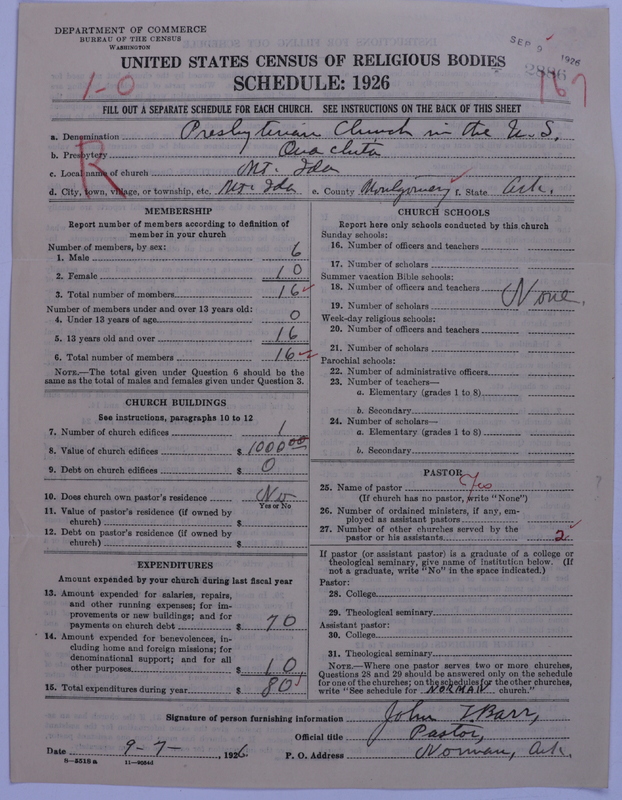 DEPARTMENT OF COMMERCE
BUREAU OF THE CENSUS
WASHINGTON
SEP 9 1926
2886
UNITED STATES CENSUS OF RELIGIOUS BODIES
SCHEDULE: 1926
1-0
167
FILL OUT A SEPARATE SCHEDULE FOR EACH CHURCH. SEE INSTRUCTIONS ON THE BACK OF THIS SHEET
R
a. Denomination Presbyterian Church in the U.S.
b. Presbytery Ouachita
c. Local name of church Mt. Ida
d. City, town, village, or township, etc. Mt. Ida e. County Montgomery f. State Ark.
MEMBERSHIP
Report number of members according to definition of
member in your church
Number of members, by sex:
1. Male 6
2. Female 10
3. Total number of members 16
Number of members under and over 13 years old:
4. Under 13 years of age 0
5. 13 years old and over 16
6. Total number of members 16
NOTE.—The total given under Question 6 should be
same as the total of males and females given under Question 3.
CHURCH BUILDINGS
See instructions, paragraphs 10 to 12
7. Number of church edifices 1
8. Value of church edifices $ 1000 00
9. Debt on church edifices $ 0
10. Does church own pastor's residence No
Yes or No
11. Value of pastor's residence (if owned by
church) $
12. Debt on pastor's residence (if owned by
church) $
EXPENDITURES
Amount expended by your church during last fiscal year
13. Amount expended for salaries, repairs,
and other running expenses; for im-
provements or new buildings; and for
payments on church debt $ 70
14. Amount expended for benevolences, in-
cluding home and foreign missions; for
denominational support; and for all
other purposes $ 10
15. Total expenditures during year $ 80
CHURCH SCHOOLS
Report here only schools conducted by this church
Sunday schools:
16. Number of officers and teachers
17. Number of scholars
Summer vacation Bible schools:
18. Number of officers and teachers
None.
19. Number of scholars
Week-day religious schools:
20. Number of officers and teachers
21. Number of scholars
Parochial schools:
22. Number of administrative officers
23. Number of teachers—
a. Elementary (grades 1 to 8)
b. Secondary
24. Number of scholars—
a. Elementary (grades 1 to 8)
b. Secondary
PASTOR
25. Name of pastor Yes
(If church has no pastor, write "None")
26. Number of ordained ministers, if any, em-
ployed as assistant pastors
27. Number of other churches served by the
pastor or his assistants 2
If pastor (or assistant pastor) is a graduate of a college or
theological seminary, give name of institution below. (If
not a graduate, write "No" in the space indicated.)
Pastor:
28. College
29. Theological seminary
Assistant pastor:
30. College
31. Theological seminary
NOTE.—Where one pastor serves two or more churches,
Questions 28 and 29 should be answered only on the schedule
for one of the churches; on the schedules for the other churches,
write "See schedule for NORMAN church."
Signature of person furnishing information John T. Barr,
Official title Pastor,
Date 9-7-, 1926. P. O. Address Norman, Ark.
8-5518a 11-9554d